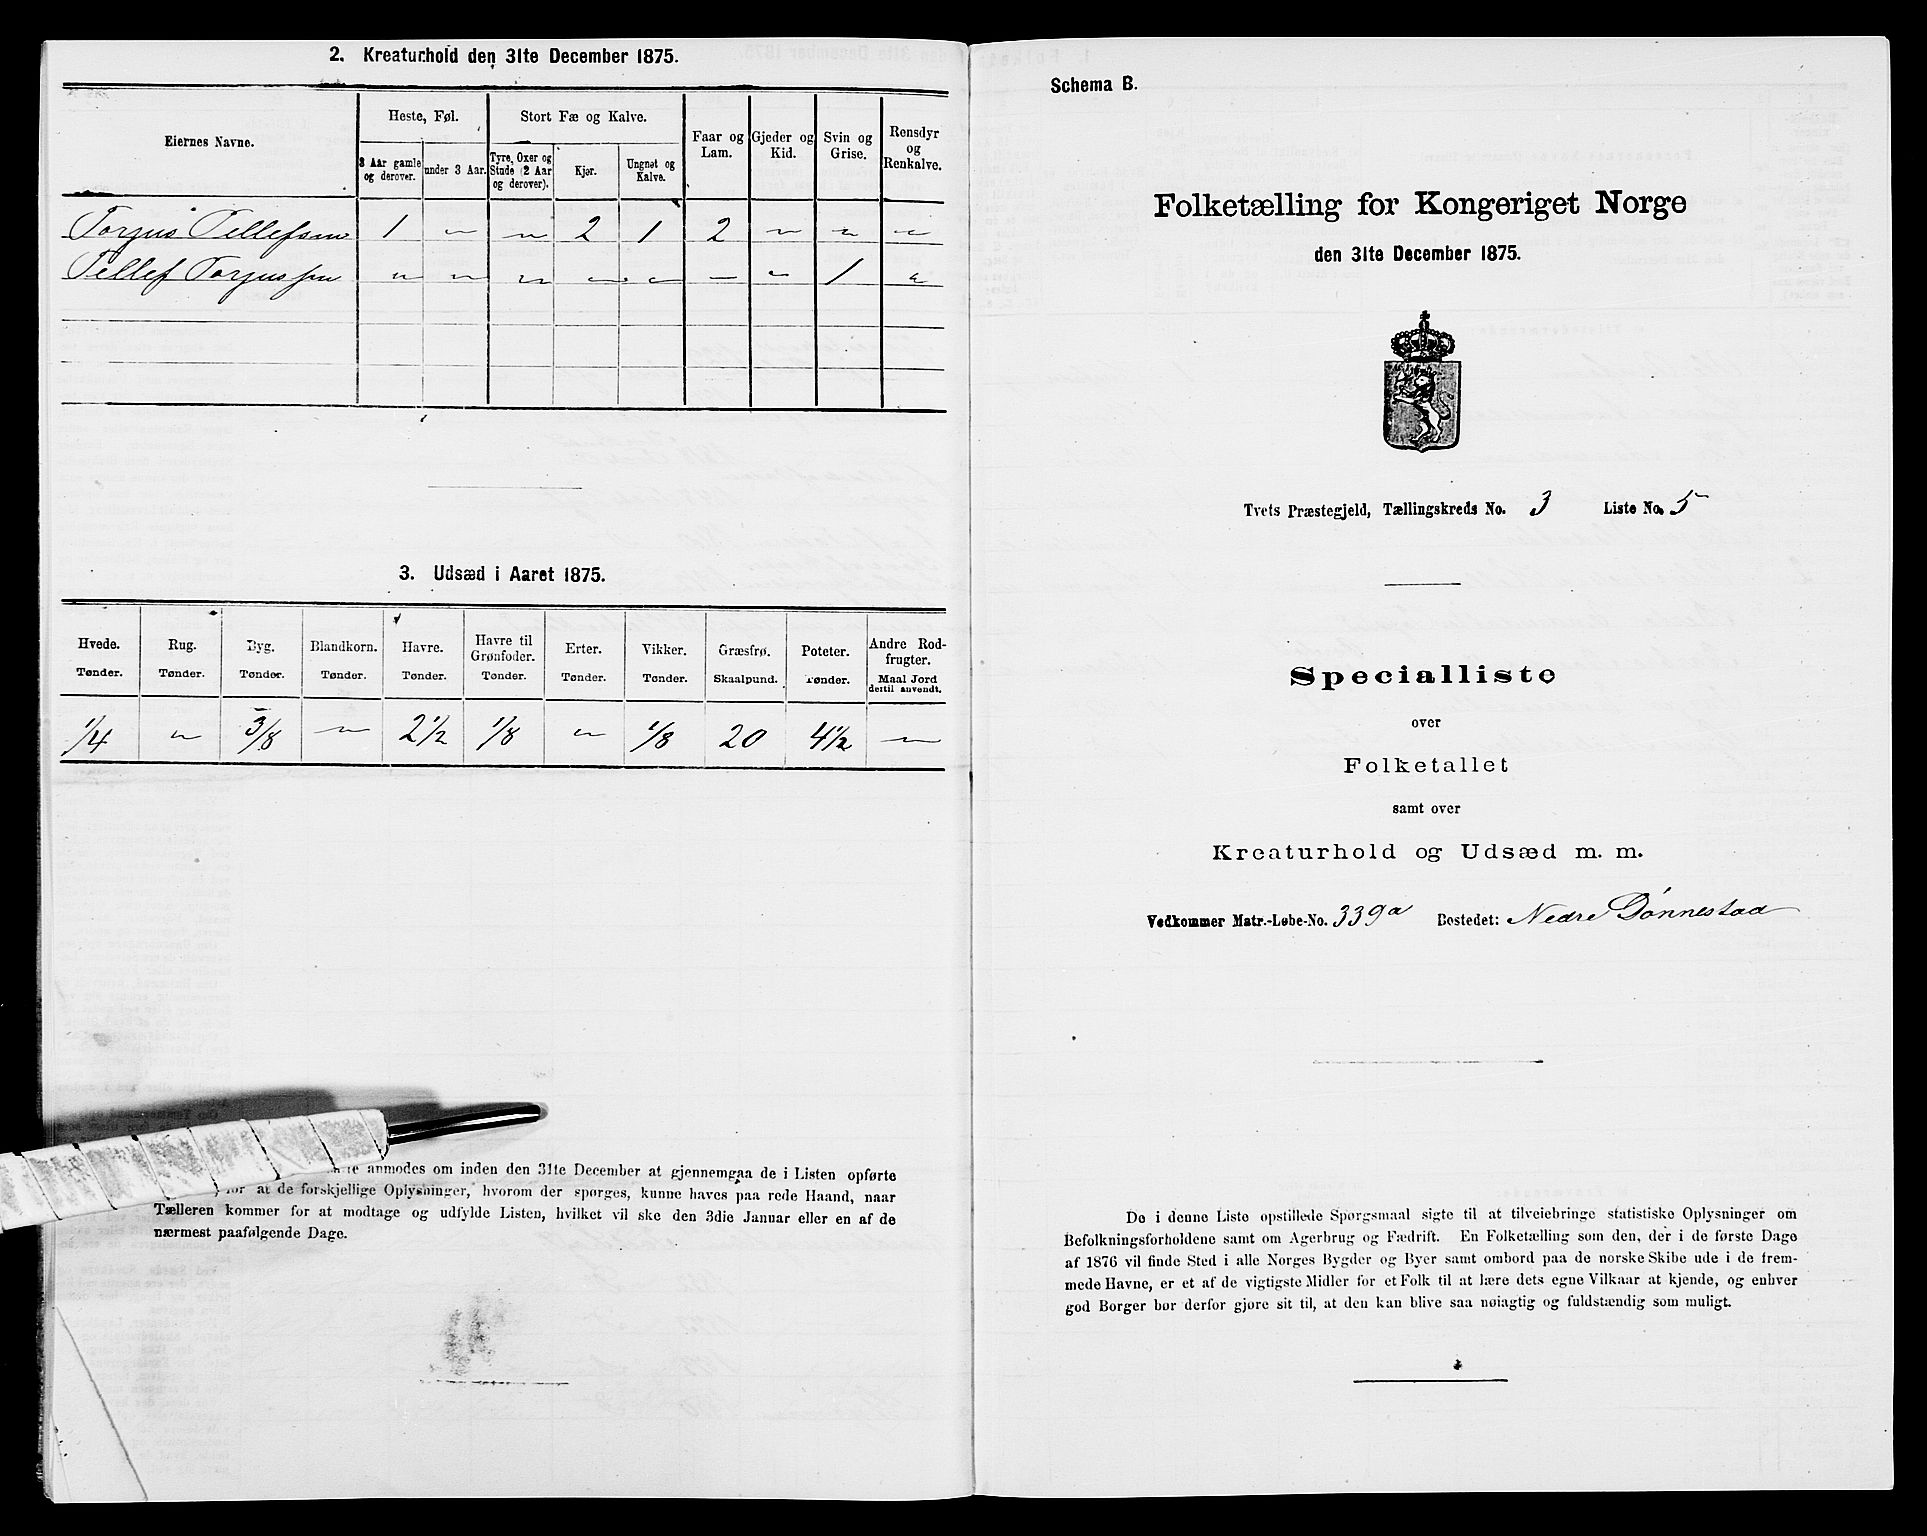 2. Kreaturhold den 31te December 1875.
Eiernes Navne.
Heste, Føl.
Stort Fæ og Kalve.
Faar og Lam.
Gjeder og Kid.
Svin og Grise.
Rensdyr og Renkalve.
3 Aar gamle og derover.
under 3 Aar.
Tyre, Oxer og Stude (2 Aar og derover).
Kjør.
Ungnøt og Kalve.
Torjus Tellefsen 1 " " 2 1 2 " " "
Tellef Torjussen " " " " " " " 1 "
3. Udsæd i Aaret 1875.
Hvede. Rug. Byg. Blandkorn. Havre. Havre til Grønfoder. Erter. Vikker. Græsfrø. Poteter. Andre Rodfrugter.
Tønder. Tønder. Tønder. Tønder. Tønder. Tønder. Tønder. Tønder. Skaalpund. Tønder. Maal Jord dertil anvendt.
1/4 " 3/8 " 2 1/2 1/8 " 1/8 20 4 1/2 "
anmodes om inden den 31te December at gjennemgaa de i Listen opførte
for at de forskjellige Oplysninger, hvorom der spørges, kunne haves paa rede Haand, naar
Tælleren kommer for at modtage og udfylde Listen, hvilket vil ske den 3die Januar eller en af de
nærmest paafølgende Dage.
Schema B.
Folketælling for Kongeriget Norge
den 31te December 1875.
Tvets Præstegjeld, Tællingskreds No. 3 Liste No. 5
Specialliste
over
Folketallet
samt over
Kreaturhold og Udsæd m. m.
Vedkommer Matr.-Løbe-No. 339a Bostedet: Nedre Dønnestad
De i denne Liste opstillede Spørgsmaal sigte til at tilveiebringe statistiske Oplysninger om
Befolkningsforholdene samt om Agerbrug og Fædrift. En Folketælling som den, der i de første Dage
af 1876 vil finde Sted i alle Norges Bygder og Byer samt ombord paa de norske Skibe ude i de frem-
mede Havne, er et af de vigtigste Midler for et Folk til at lære dets egne Vilkaar at kjende, og enhver
god Borger bør derfor gjøre sit til, at den kan blive saa nøiagtig og fuldstændig som muligt.